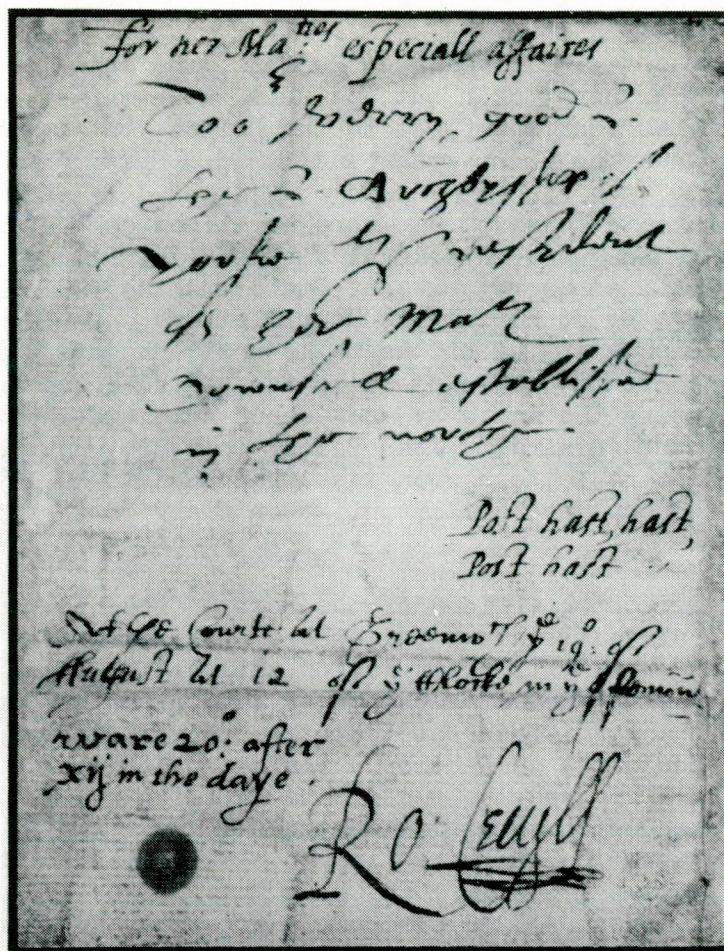 for her Ma:ties especiall affaires
Too my verry good L.
the L. Archbishop of
Yorke L president
of her Maties
Counsell established
in the northe.
Post hast, hast,
Post hast
At the Courte at Greenwch ye 19º: of
August at 12 of ye Clocke in ye
ware 20º: after
xij in the daye.
Ro: Cecyll